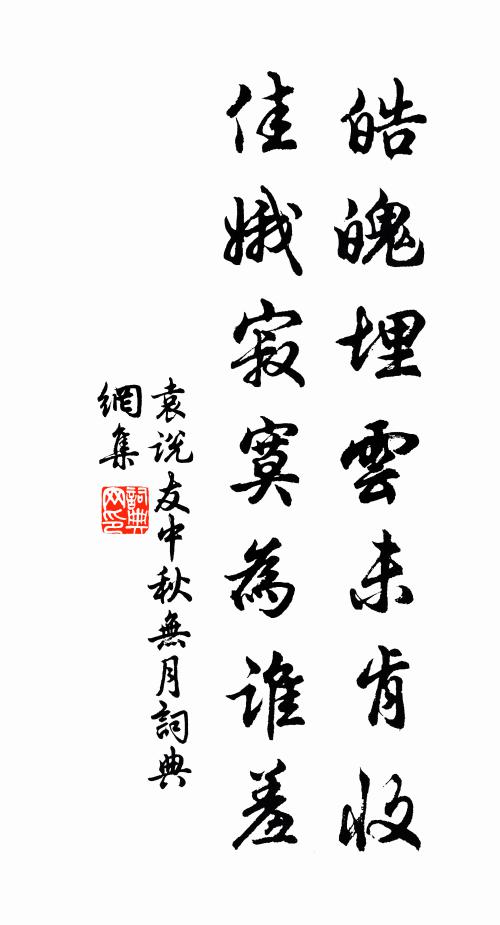 皓魄埋雲未肯收
佳娥寂寞為誰羞
袁说友中秋無月詞典
網集
詞典
网印